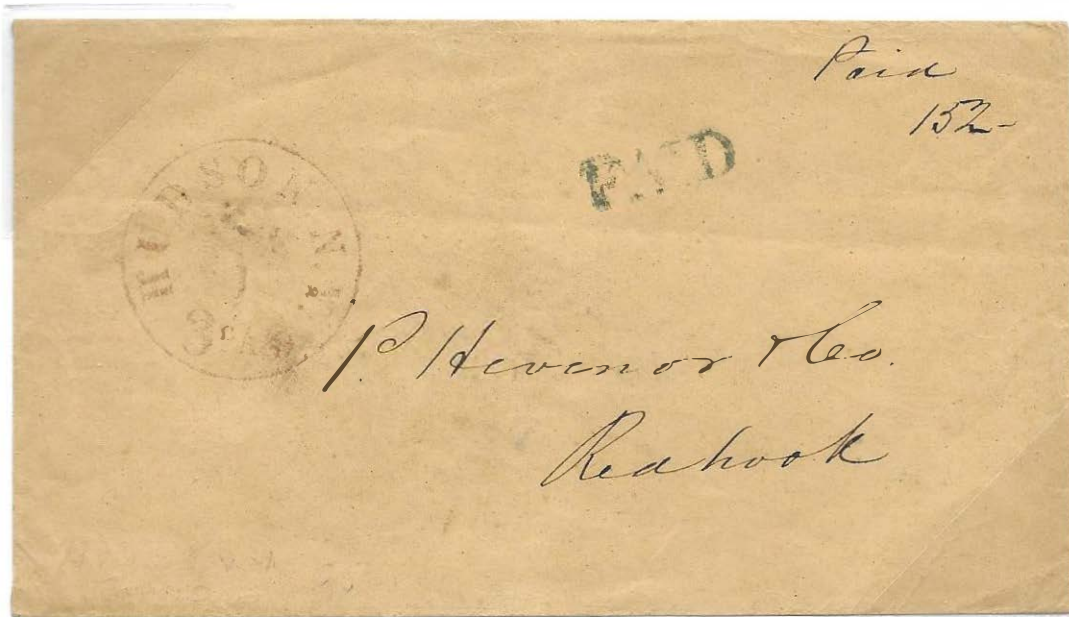 Paid
152-
PAID
HUDSON N.Y.
P. Hevenor & Co.
Redhook